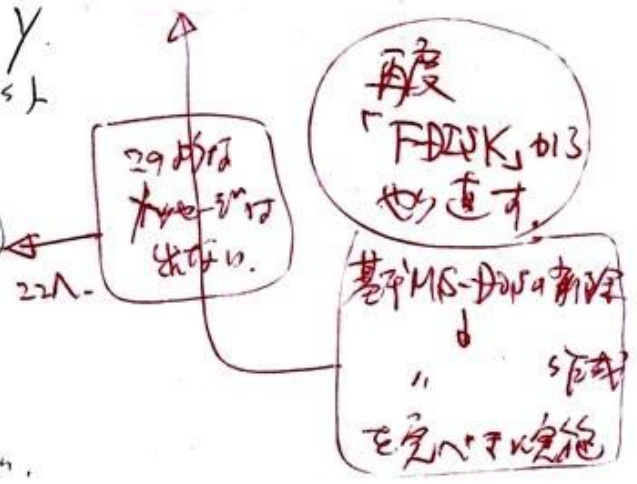 Y
このような
メッセージは
出てない.
ここへ
再度
「FDISK」から
やり直す.
基本MS-DOSの削除
↓
〃 作成
を完ぺきに実施